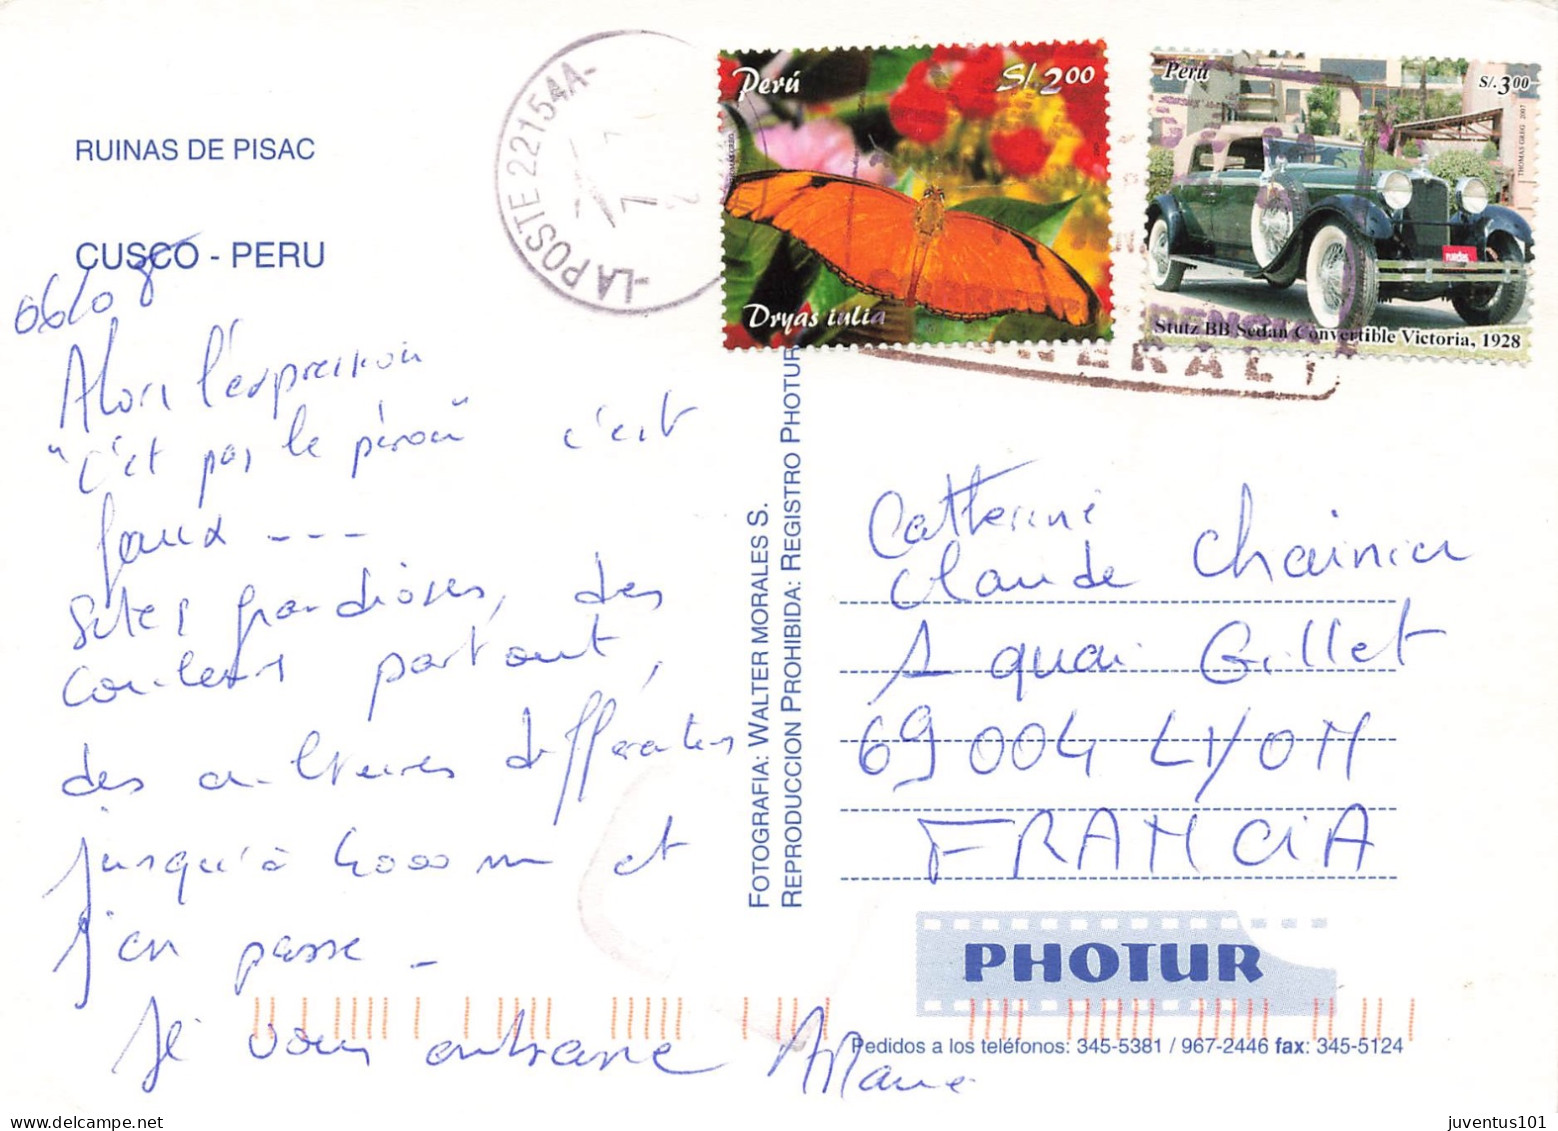 RUINAS DE PISAC
CUSCO - PERU
Alors l'expression
"c'est pas le pérou" c'est
faux ---
Sites grandioses, des
couleurs partout,
des cultures différentes
jusqu'à 4000 m et
j'en passe -
Je vous embrasse
LA POSTE 22154A-
Perú
S/.2.00
Dryas iulia
Perú
S/.3.00
THOMAS GREIG 2007
Stutz BB Sedan Convertible Victoria, 1928
FOTOGRAFIA: WALTER MORALES S.
REPRODUCCION PROHIBIDA: REGISTRO PHOTUR
Catherine
Claude Chainier
1 quai Gillet
69004 LYON
FRANCIA
PHOTUR
Pedidos a los teléfonos: 345-5381 / 967-2446 fax: 345-5124
juventus101